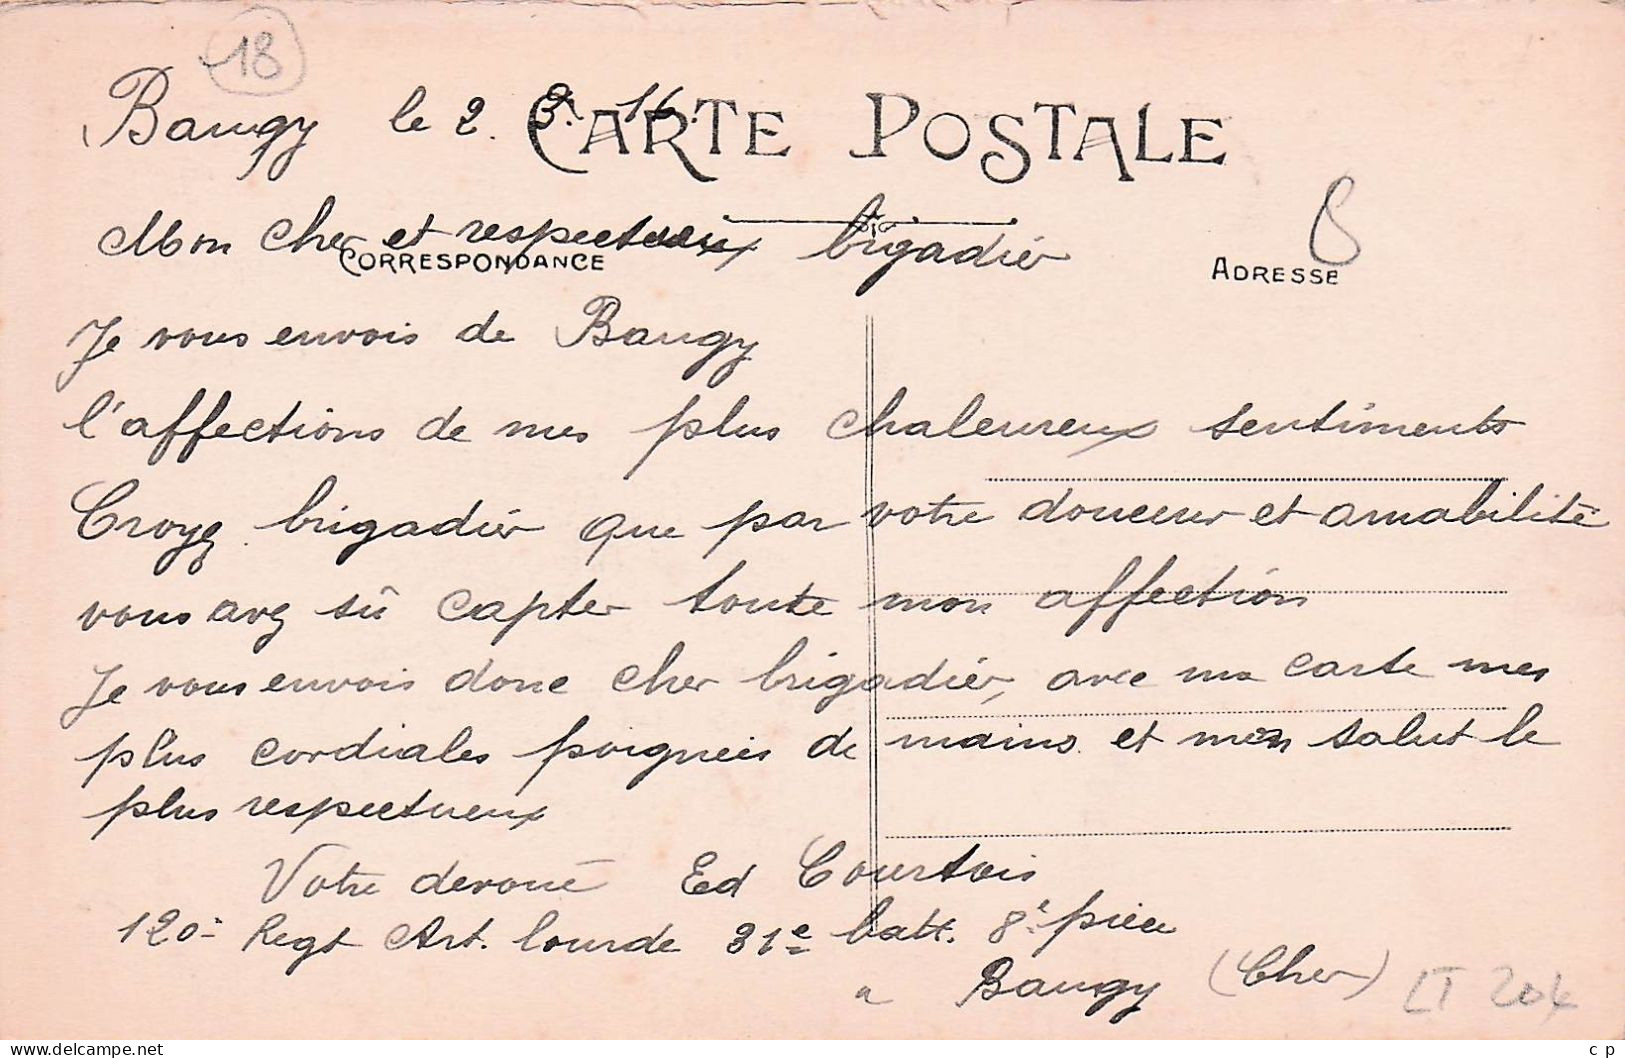 18
Baugy le 2. 3. 16.
CARTE POSTALE
Mon cher et respectueux brigadier
CORRESPONDANCE
ADRESSE
8
Je vous envois de Baugy
l'affections de mes plus chaleureux sentiments
Croyez brigadier que par votre douceur et amabilité
vous avez sû capter toute mon affection
Je vous envois donc cher brigadier, avec ma carte mes
plus cordiales poignées de mains et mon salut le
plus respectueux
Votre devoué Ed Courtois
120e Regt Art. lourde 31e batt. 8e pièce
a Baugy (Cher)
LT 204
delcampe.net
c p